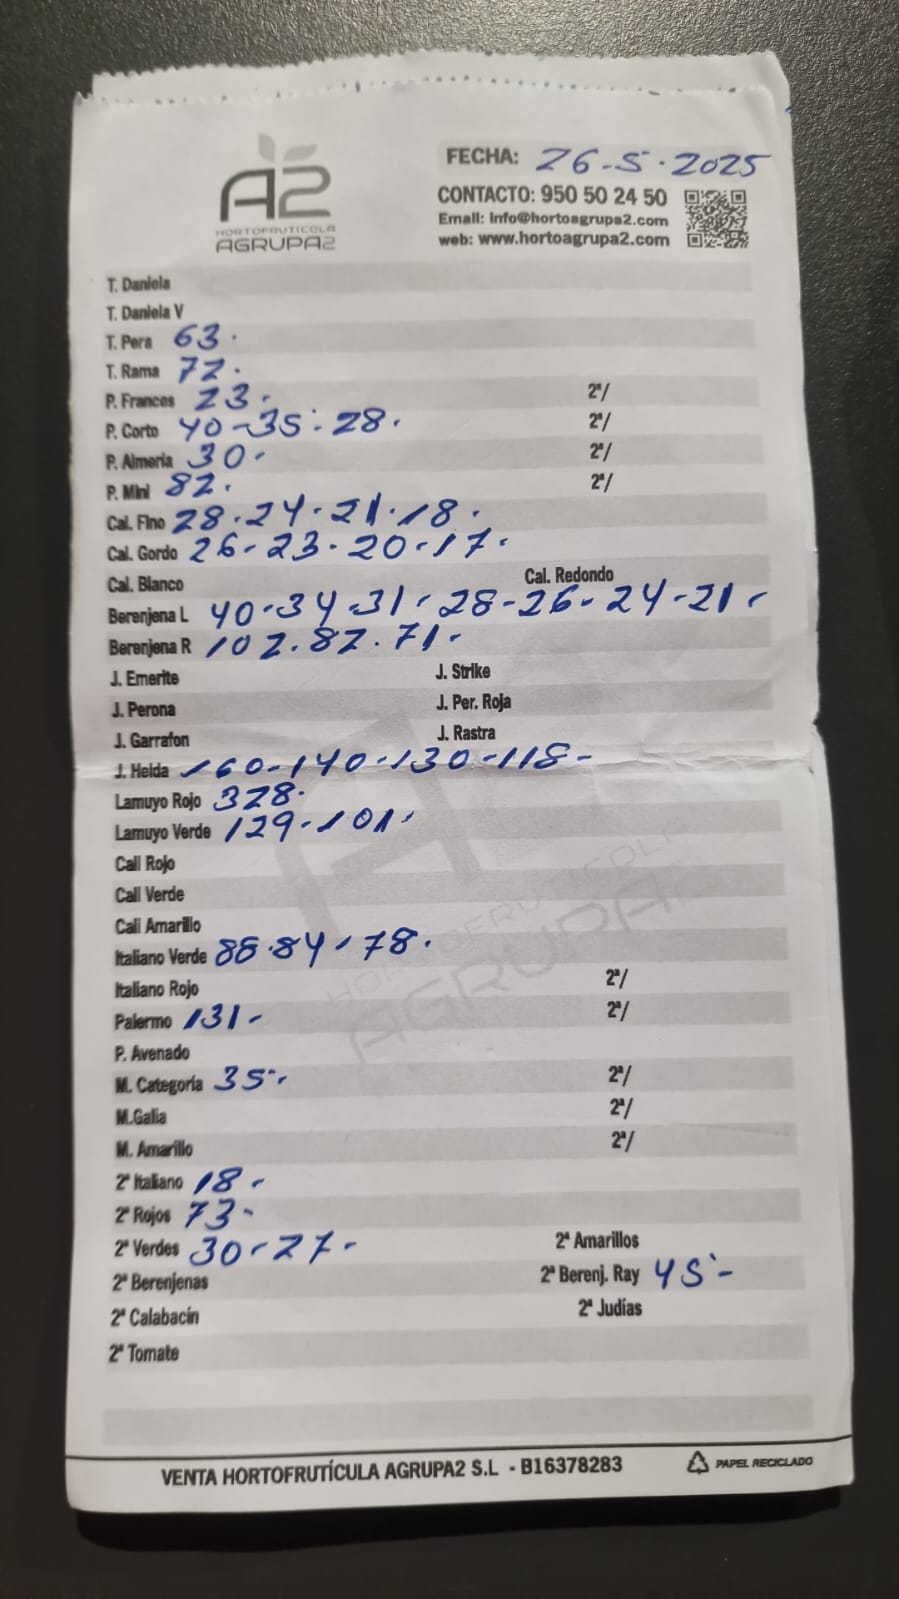 A2
HORTOFRUTICOLA
AGRUPA2
FECHA: 26-5-2025
CONTACTO: 950 50 24 50
Email: info@hortoagrupa2.com
web: www.hortoagrupa2.com
T. Daniela
T. Daniela V
T. Pera 63.
T. Rama 72.
P. Frances 23. 2ª/
P. Corto 40-35.28. 2ª/
P. Almería 30. 2ª/
P. Mini 82. 2ª/
Cal. Fino 28.24.21.18.
Cal. Gordo 26-23.20-17.
Cal. Blanco Cal. Redondo
Berenjena L 40-34-31-28-26-24-21-
Berenjena R 102.82.71.
J. Emerite J. Strike
J. Perona J. Per. Roja
J. Garrafon J. Rastra
J. Helda 160-140-130-118-
Lamuyo Rojo 328.
Lamuyo Verde 129-101.
Cali Rojo
Cali Verde
Cali Amarillo
Italiano Verde 88.84-78.
Italiano Rojo 2ª/
Palermo 131- 2ª/
P. Avenado
M. Categoría 35- 2ª/
M.Galia 2ª/
M. Amarillo 2ª/
2ª Italiano 18-
2ª Rojos 73-
2ª Verdes 30-27- 2ª Amarillos
2ª Berenjenas 2ª Berenj. Ray 45-
2ª Calabacín 2ª Judías
2ª Tomate
HORTOFRUTICOLA
AGRUPA2
VENTA HORTOFRUTÍCULA AGRUPA2 S.L - B16378283 PAPEL RECICLADO